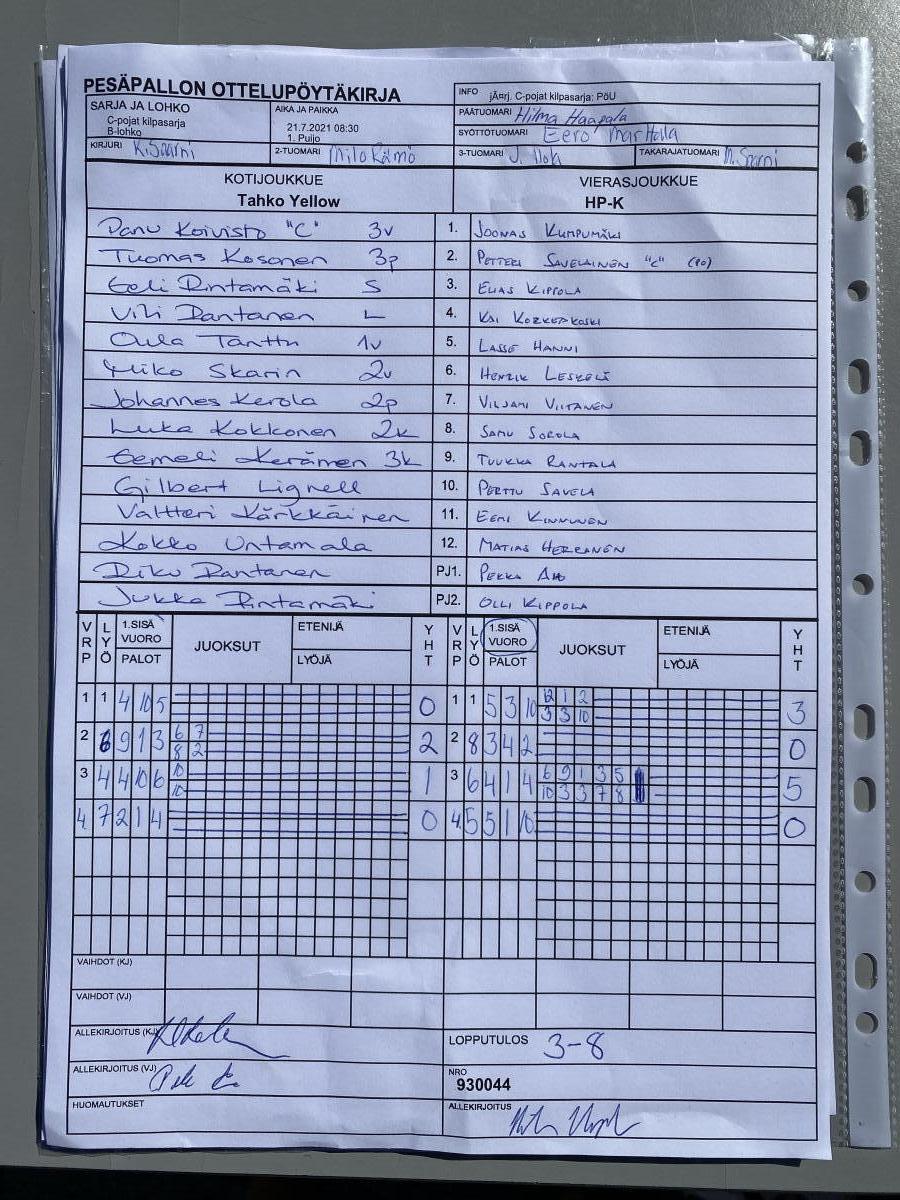 PESÄPALLON OTTELUPÖYTÄKIRJA
INFO jÄ¤rj. C-pojat kilpasarja: PöU
SARJA JA LOHKO
C-pojat kilpasarja
B-lohko
AIKA JA PAIKKA
21.7.2021 08:30
1. Puijo
PÄÄTUOMARI Hilma Haapala
SYÖTTÖTUOMARI Eero Marttila
KIRJURI K.Saarni
2-TUOMARI Milo Rämö
3-TUOMARI J. Ilola
TAKARAJATUOMARI M. Saarni
KOTIJOUKKUE
Tahko Yellow
VIERASJOUKKUE
HP-K
Panu Koivisto "C" 3v 1. JOONAS KUMPUMÄKI
Tuomas Kosonen 3p 2. PETTERI SAVELAINEN "C" (PO)
Eeli Rintamäki S 3. ELIAS KIPPOLA
Vili Rantanen L 4. KAI KORKEAKOSKI
Oula Tanttu 1v 5. LASSE HANNI
Miko Skarin 2v 6. HENRIK LESKELÄ
Johannes Kerola 2p 7. VILJAMI VIITANEN
Luka Kokkonen 2k 8. SAMU SOROLA
Eemeli Keränen 3k 9. TUUKKA RANTALA
Gilbert Lignell 10. PERTTU SAVELA
Valtteri Kärkkäinen 11. EEMI KINNUNEN
Kokko Untamala 12. MATIAS HERRANEN
Riku Rantanen PJ1. PEKKA AHO
Jukka Rintamäki PJ2. OLLI KIPPOLA
VRP LYÖ 1.SISÄ VUORO PALOT JUOKSUT ETENIJÄ LYÖJÄ YHT VRP LYÖ 1.SISÄ VUORO PALOT JUOKSUT ETENIJÄ LYÖJÄ YHT
1 1 4 10 5 0 1 1 5 3 10 12 1 2 3
3 3 10
2 6 9 1 3 6 7 2 2 8 3 4 2 0
8 2
3 4 4 10 6 10 1 3 6 4 1 4 6 9 1 3 5 5
10 10 3 3 7 8
4. 7 2 1 4 0 4. 5 5 1 10 0
VAIHDOT (KJ)
VAIHDOT (VJ)
ALLEKIRJOITUS (KJ)
LOPPUTULOS 3-8
ALLEKIRJOITUS (VJ)
NRO
930044
HUOMAUTUKSET
ALLEKIRJOITUS